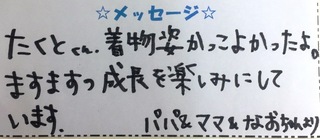 ☆メッセージ☆
たくとくん、着物姿かっこよかったよ。
ますますっ成長を楽しみにして
います。 パパ&ママ&なおちゃんより